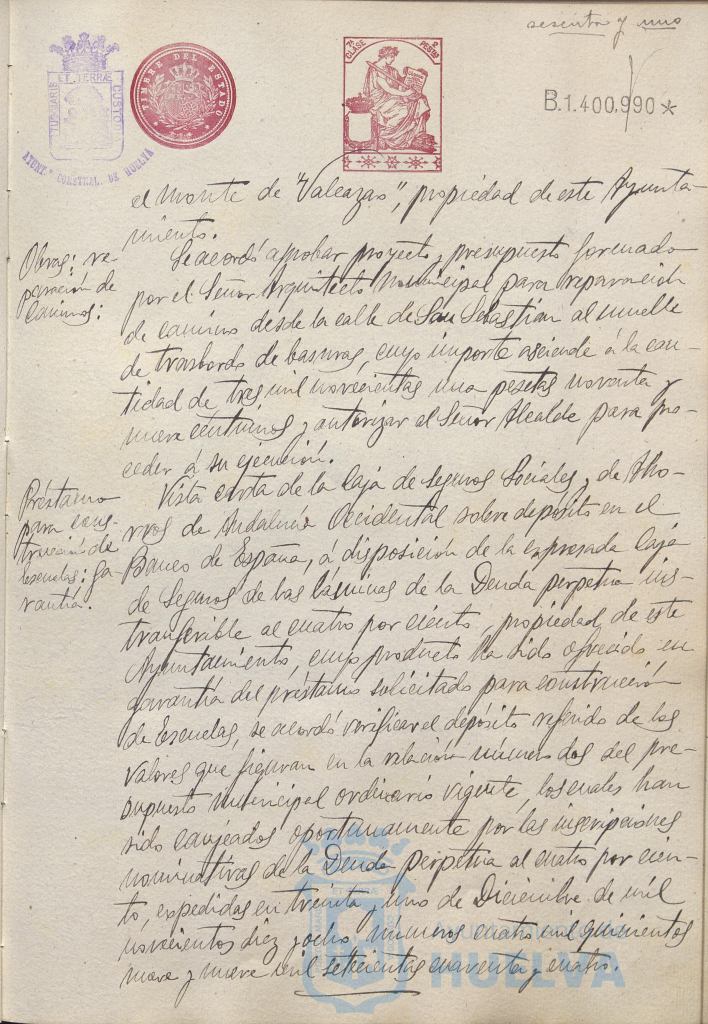 sesenta y uno
PORTUS MARIS ET TERRÆ CUSTODIA
AYUNT.º CONSTNAL. DE HUELVA
TIMBRE DEL ESTADO
7ª CLASE
B.1.400,990 *
el monte de "Valcazao", propiedad de este Ayunta-
miento.
Obras: re-
paración de
Caminos:
Se acordó aprobar proyecto y presupuesto formado
por el Señor Arquitecto Municipal para reparación
de camino desde la calle de San Sebastián al muelle
de trasbordo de basuras, cuyo importe asciende á la can-
tidad de tres mil novecientas una pesetas noventa y
nueve centimos y autorizar al Señor Alcalde para pro-
ceder á su ejecución.
Préstamo
para cons-
trucción de
Escuelas: ga-
rantía.
Vista carta de la Caja de Seguros Sociales y de Aho-
rros de Andalucía Occidental sobre depósito en el
Banco de España, á disposición de la expresada Caja
de Seguros de las láminas de la Deuda perpetua ins-
transferible al cuatro por ciento, propiedad de este
Ayuntamiento, cuyo producto ha sido ofrecido en
garantía del préstamo solicitado para construcción
de Escuelas, se acordó verificar el depósito referido de los
valores que figuran en la relación número dos del pre-
supuesto municipal ordinario vigente, los cuales han
sido canjeados oportunamente por las inscripciones
nominativas de la Deuda perpetua al cuatro por cien-
to, expedidas en treinta y uno de Diciembre de mil
novecientos diez y ocho números cuatro mil quinientos
nueve y nueve mil setecientas cuarenta y cuatro.
HUELVA